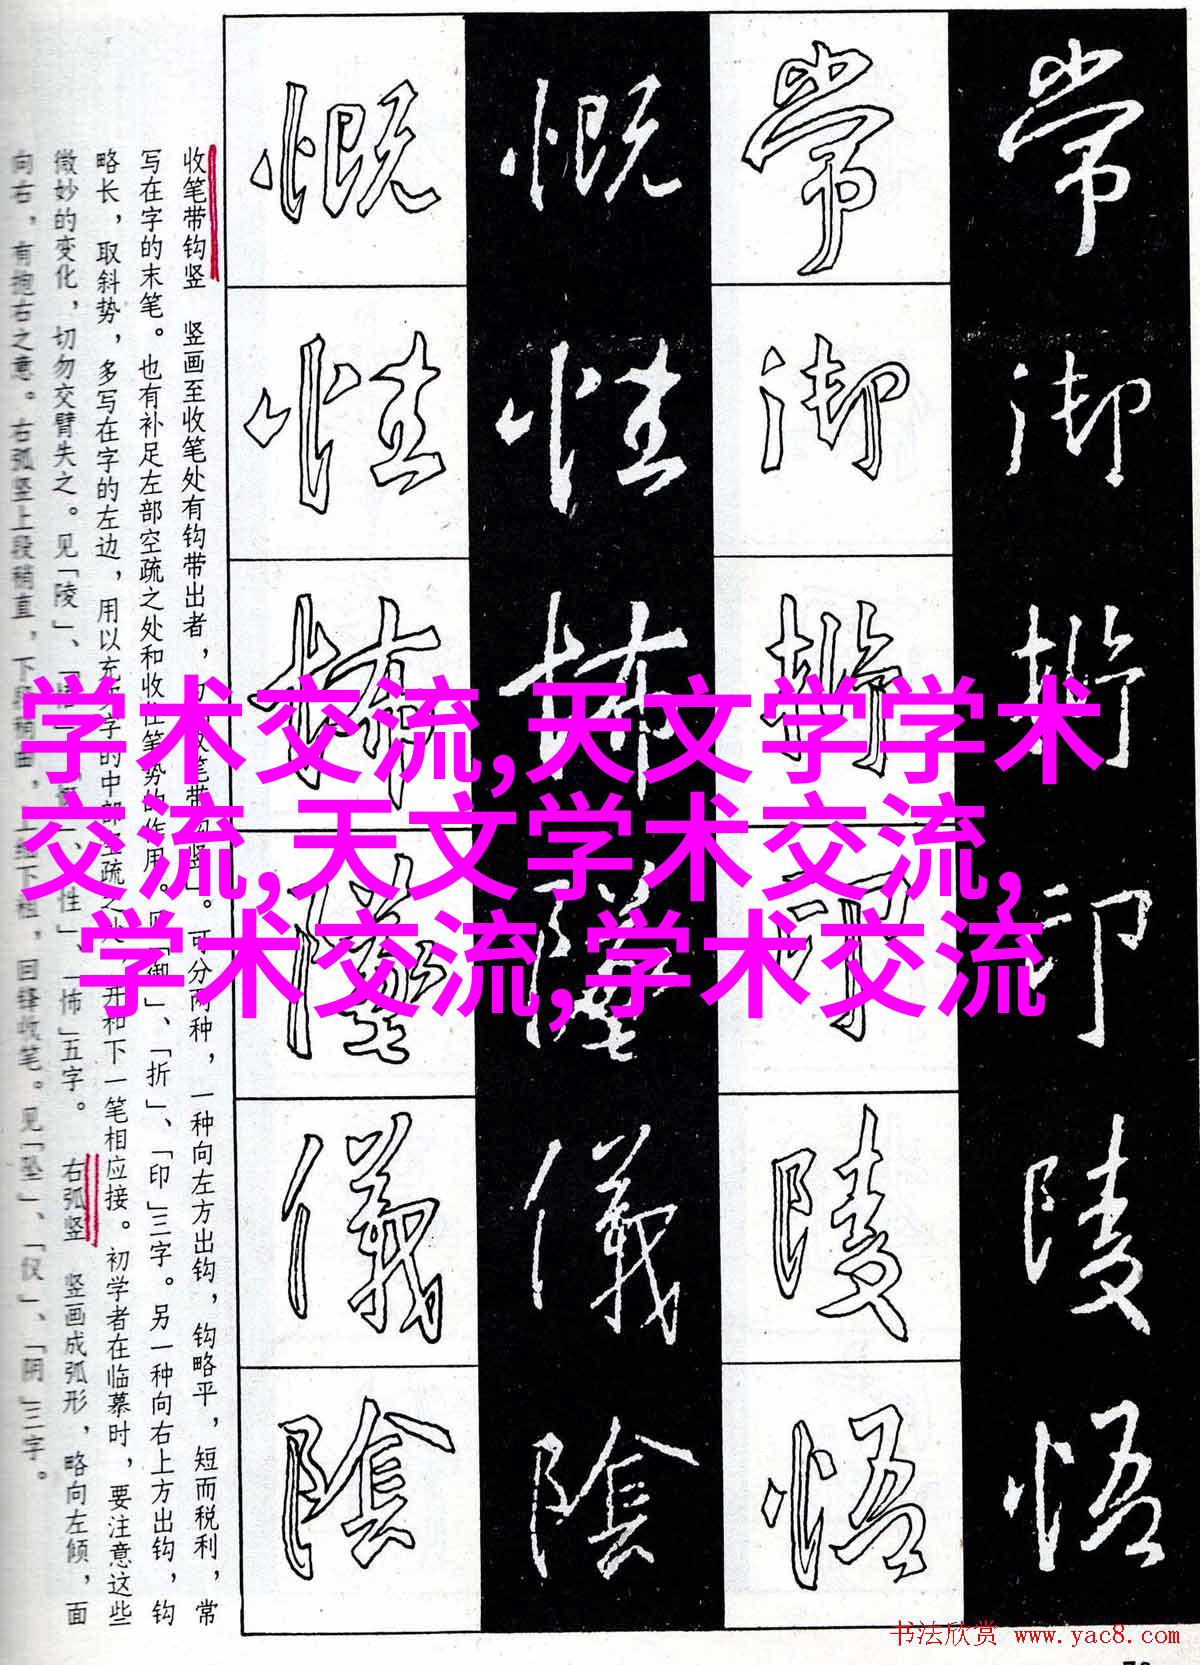 收笔带钩竖 竖画至收笔处有钩带出者,为「收笔带钩竖」。可分两种,一种向左方出钩,钩略平,短而税利,常
写在字的末笔。也有补足左部空疏之处和收住笔势的作用。见「御」、「折」、「印」三字。另一种向右上方出钩,钩
略长,取斜势,多写在字的左边,用以充实字的中部空疏之处,开和下一笔相应接。初学者在临慕时,要注意这些
微妙的变化,切勿交臂失之。见「陵」、「悟」、「慨」、「性」、「怖」五字。 右弧竖 竖画成弧形,略向左倾,面
向右,有抱右之意。右弧竖上段稍直,下段稍曲,上细下粗,回锋收笔。见「坠」、「仪」、「阴」三字。
常 御 折 印 陵 悟
慨 性 怖 墜 儀 陰
学术交流,天文学学术
交流,天文学术交流,
学术交流,学术交流
书法欣赏 www.yac8.com